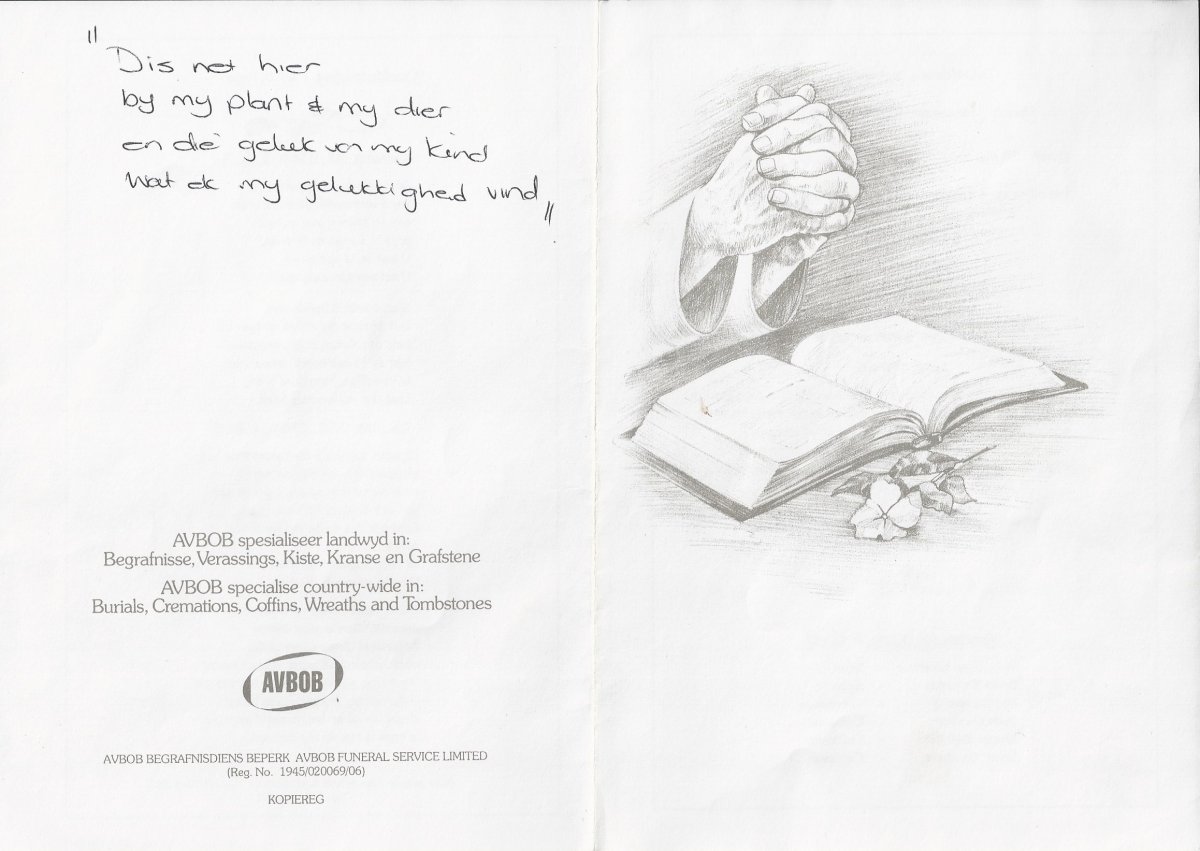 "Dis net hier
by my plant & my dier
en die geluk van my kind
Wat ek my gelukkigheid vind"
AVBOB spesialiseer landwyd in:
Begrafnisse, Verassings, Kiste, Kranse en Grafstene
AVBOB specialise country-wide in:
Burials, Cremations, Coffins, Wreaths and Tombstones
AVBOB
AVBOB BEGRAFNISDIENS BEPERK AVBOB FUNERAL SERVICE LIMITED
(Reg. No. 1945/020069/06)
KOPIEREG